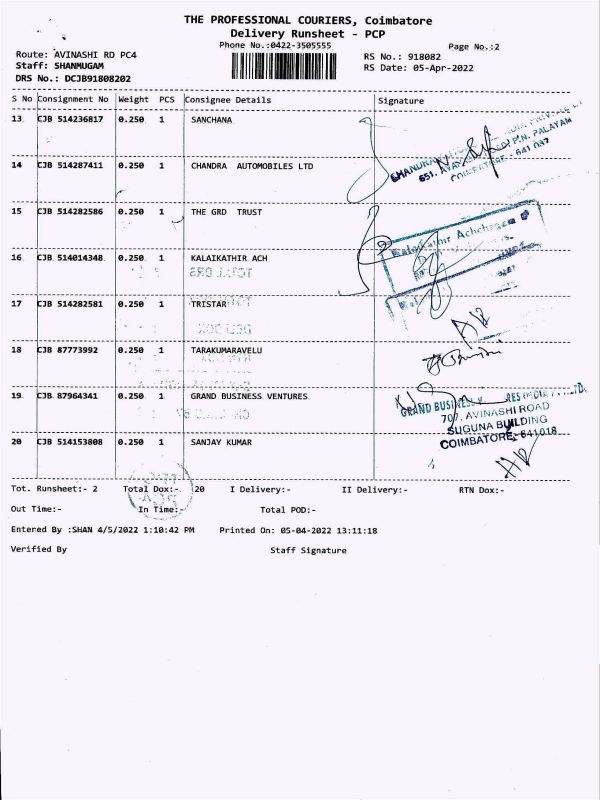 THE PROFESSIONAL COURIERS, Coimbatore
Delivery Runsheet - PCP
Phone No.:0422-3505555
Page No.:2
Route: AVINASHI RD PC4
RS No.: 918082
Staff: SHANMUGAM
RS Date: 05-Apr-2022
DRS No.: DCJB91808202
S No Consignment No Weight PCS Consignee Details Signature
13 CJB 514236817 0.250 1 SANCHANA
651,
COIMBATORE - 641 037
P.N. PALAYAM
14 CJB 514287411 0.250 1 CHANDRA AUTOMOBILES LTD
15 CJB 514282586 0.250 1 THE GRD TRUST
Kalaikathir Achchagam
16 CJB 514014348 0.250 1 KALAIKATHIR ACH
17 CJB 514282581 0.250 1 TRISTAR
18 CJB 87773992 0.250 1 TARAKUMARAVELU
19 CJB 87964341 0.250 1 GRAND BUSINESS VENTURES
GRAND BUSINESS
707, AVINASHI ROAD
SUGUNA BUILDING
COIMBATORE-641018
20 CJB 514153808 0.250 1 SANJAY KUMAR
Tot. Runsheet:- 2 Total Dox:- 20 I Delivery:- II Delivery:- RTN Dox:-
Out Time:- In Time:- Total POD:-
Entered By :SHAN 4/5/2022 1:10:42 PM Printed On: 05-04-2022 13:11:18
Verified By Staff Signature